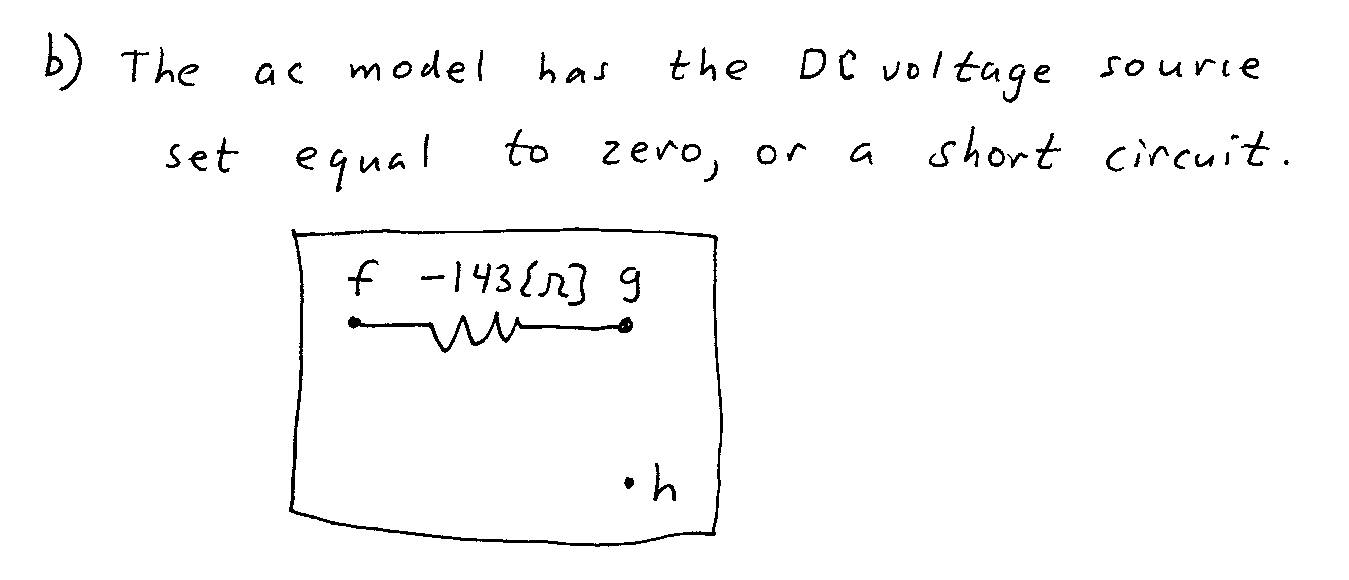 b) The ac model has the DC voltage source
set equal to zero, or a short circuit.
f -143{Ω} g
h